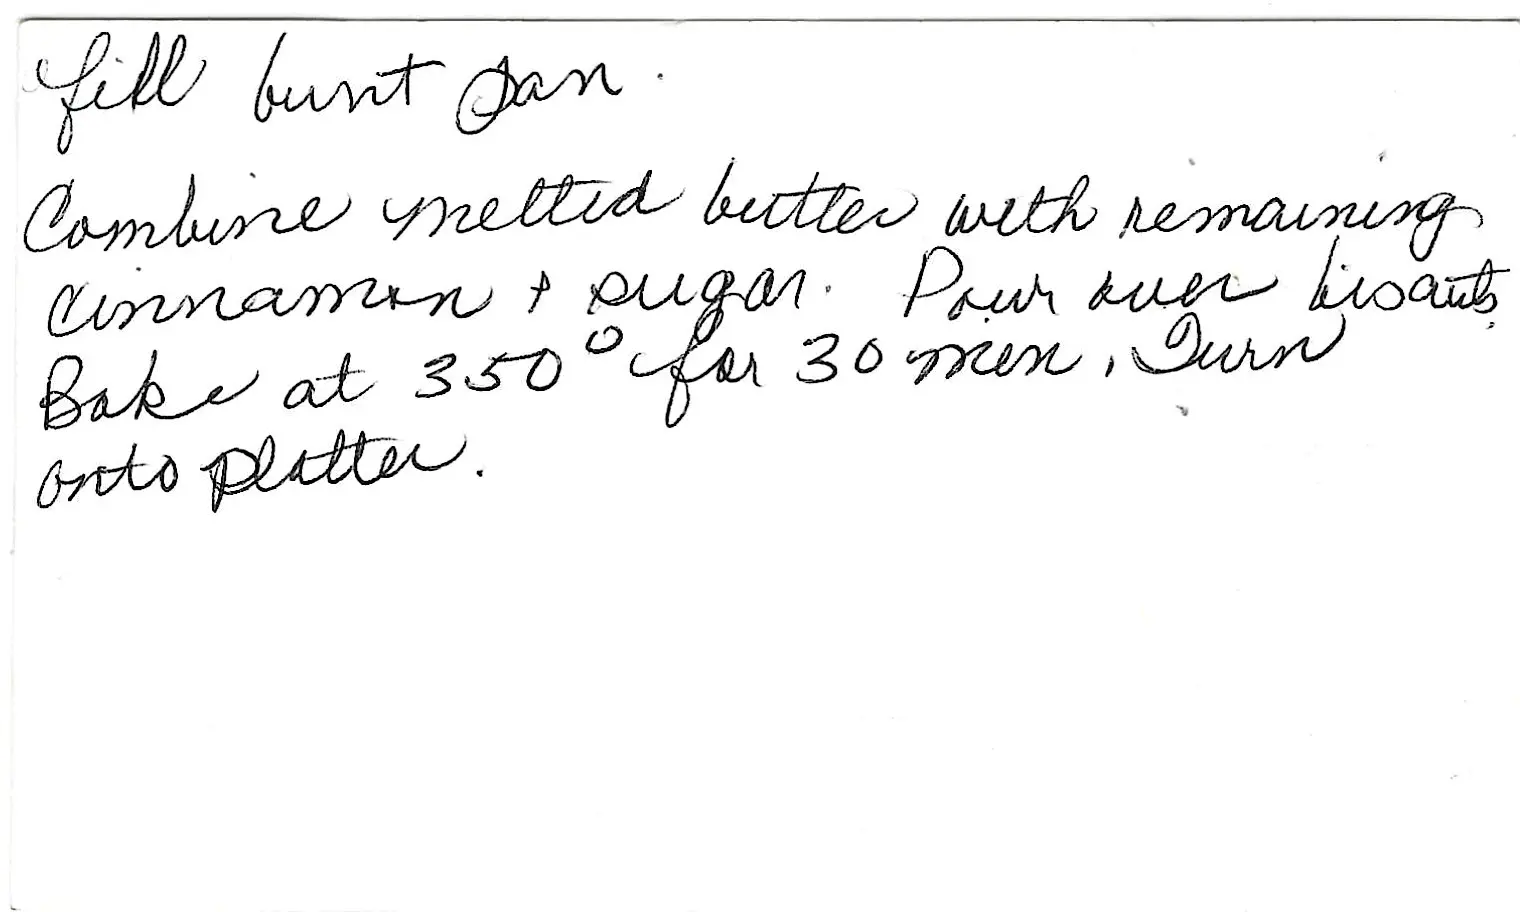 fill bunt pan.
Combine melted butter with remaining
cinnamon + sugar. Pour over bisquits.
Bake at 350° for 30 min. Turn
onto platter.